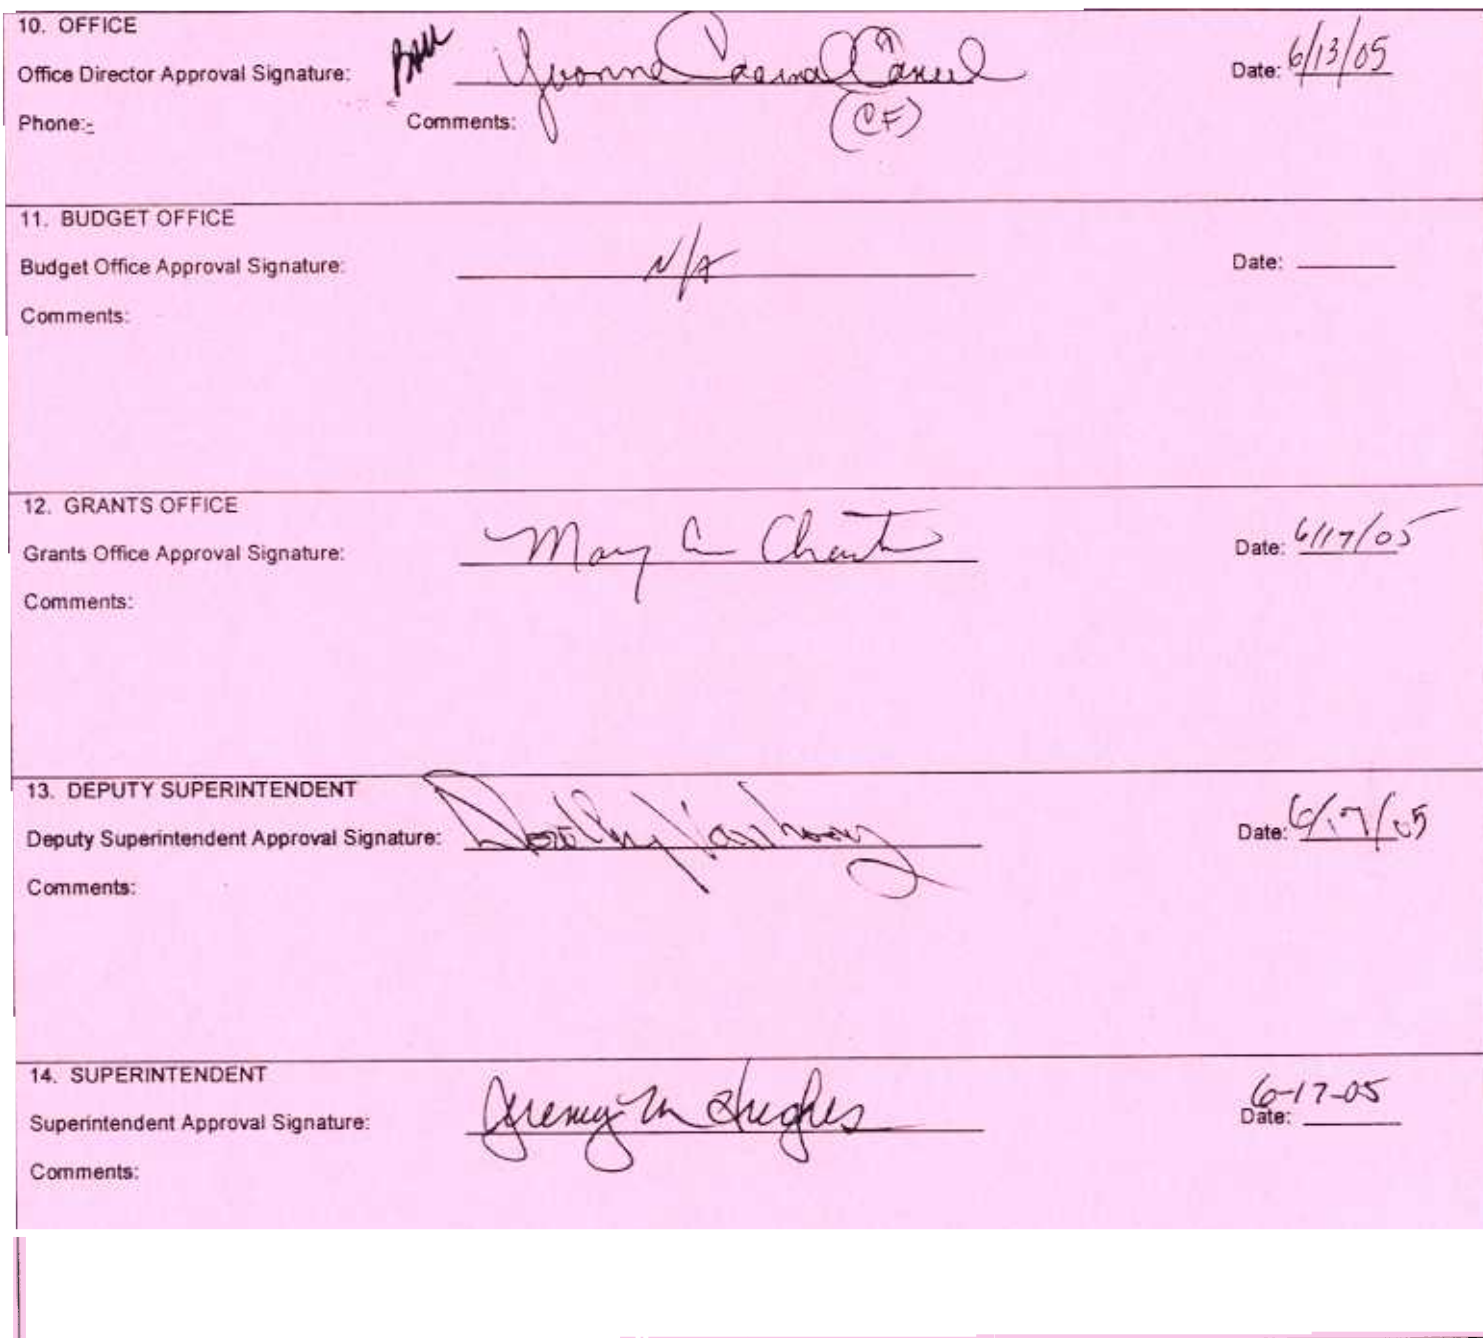 10. OFFICE
Office Director Approval Signature: Yvonne Caamal Canul Date: 6/13/05
Phone:- Comments: (CF)
11. BUDGET OFFICE
Budget Office Approval Signature: N/A Date:
Comments:
12. GRANTS OFFICE
Grants Office Approval Signature: Mary Date: 6/17/05
Comments:
13. DEPUTY SUPERINTENDENT
Deputy Superintendent Approval Signature: Date: 6/17/05
Comments:
14. SUPERINTENDENT
Superintendent Approval Signature: Jeremy M Hughes Date: 6-17-05
Comments: